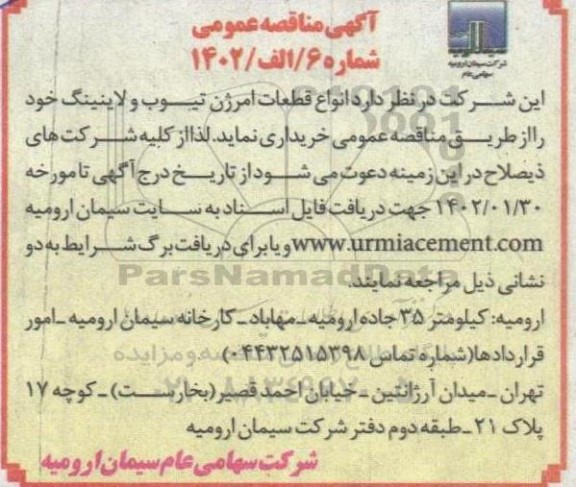 آگهی مناقصه عمومی
شماره ۶/الف/۱۴۰۲
شرکت سیمان ارومیه
سهامی عام
این شرکت در نظر دارد انواع قطعات امرژن تیوب و لاینینگ خود
را از طریق مناقصه عمومی خریداری نماید. لذا از کلیه شرکت های
ذیصلاح در این زمینه دعوت می شود از تاریخ درج آگهی تا مورخه
۱۴۰۲/۰۱/۳۰ جهت دریافت فایل اسناد به سایت سیمان ارومیه
www.urmiacement.com و یا برای دریافت برگ شرایط به دو
نشانی ذیل مراجعه نمایند.
ParsNamadData
ارومیه: کیلومتر ۳۵ جاده ارومیه ـ مهاباد ـ کارخانه سیمان ارومیه ـ امور
قراردادها (شماره تماس ۰۴۴۳۲۵۱۵۳۹۸)
تهران ـ میدان آرژانتین ـ خیابان احمد قصیر (بخارست) ـ کوچه ۱۷
پلاک ۲۱ ـ طبقه دوم دفتر شرکت سیمان ارومیه
شرکت سهامی عام سیمان ارومیه